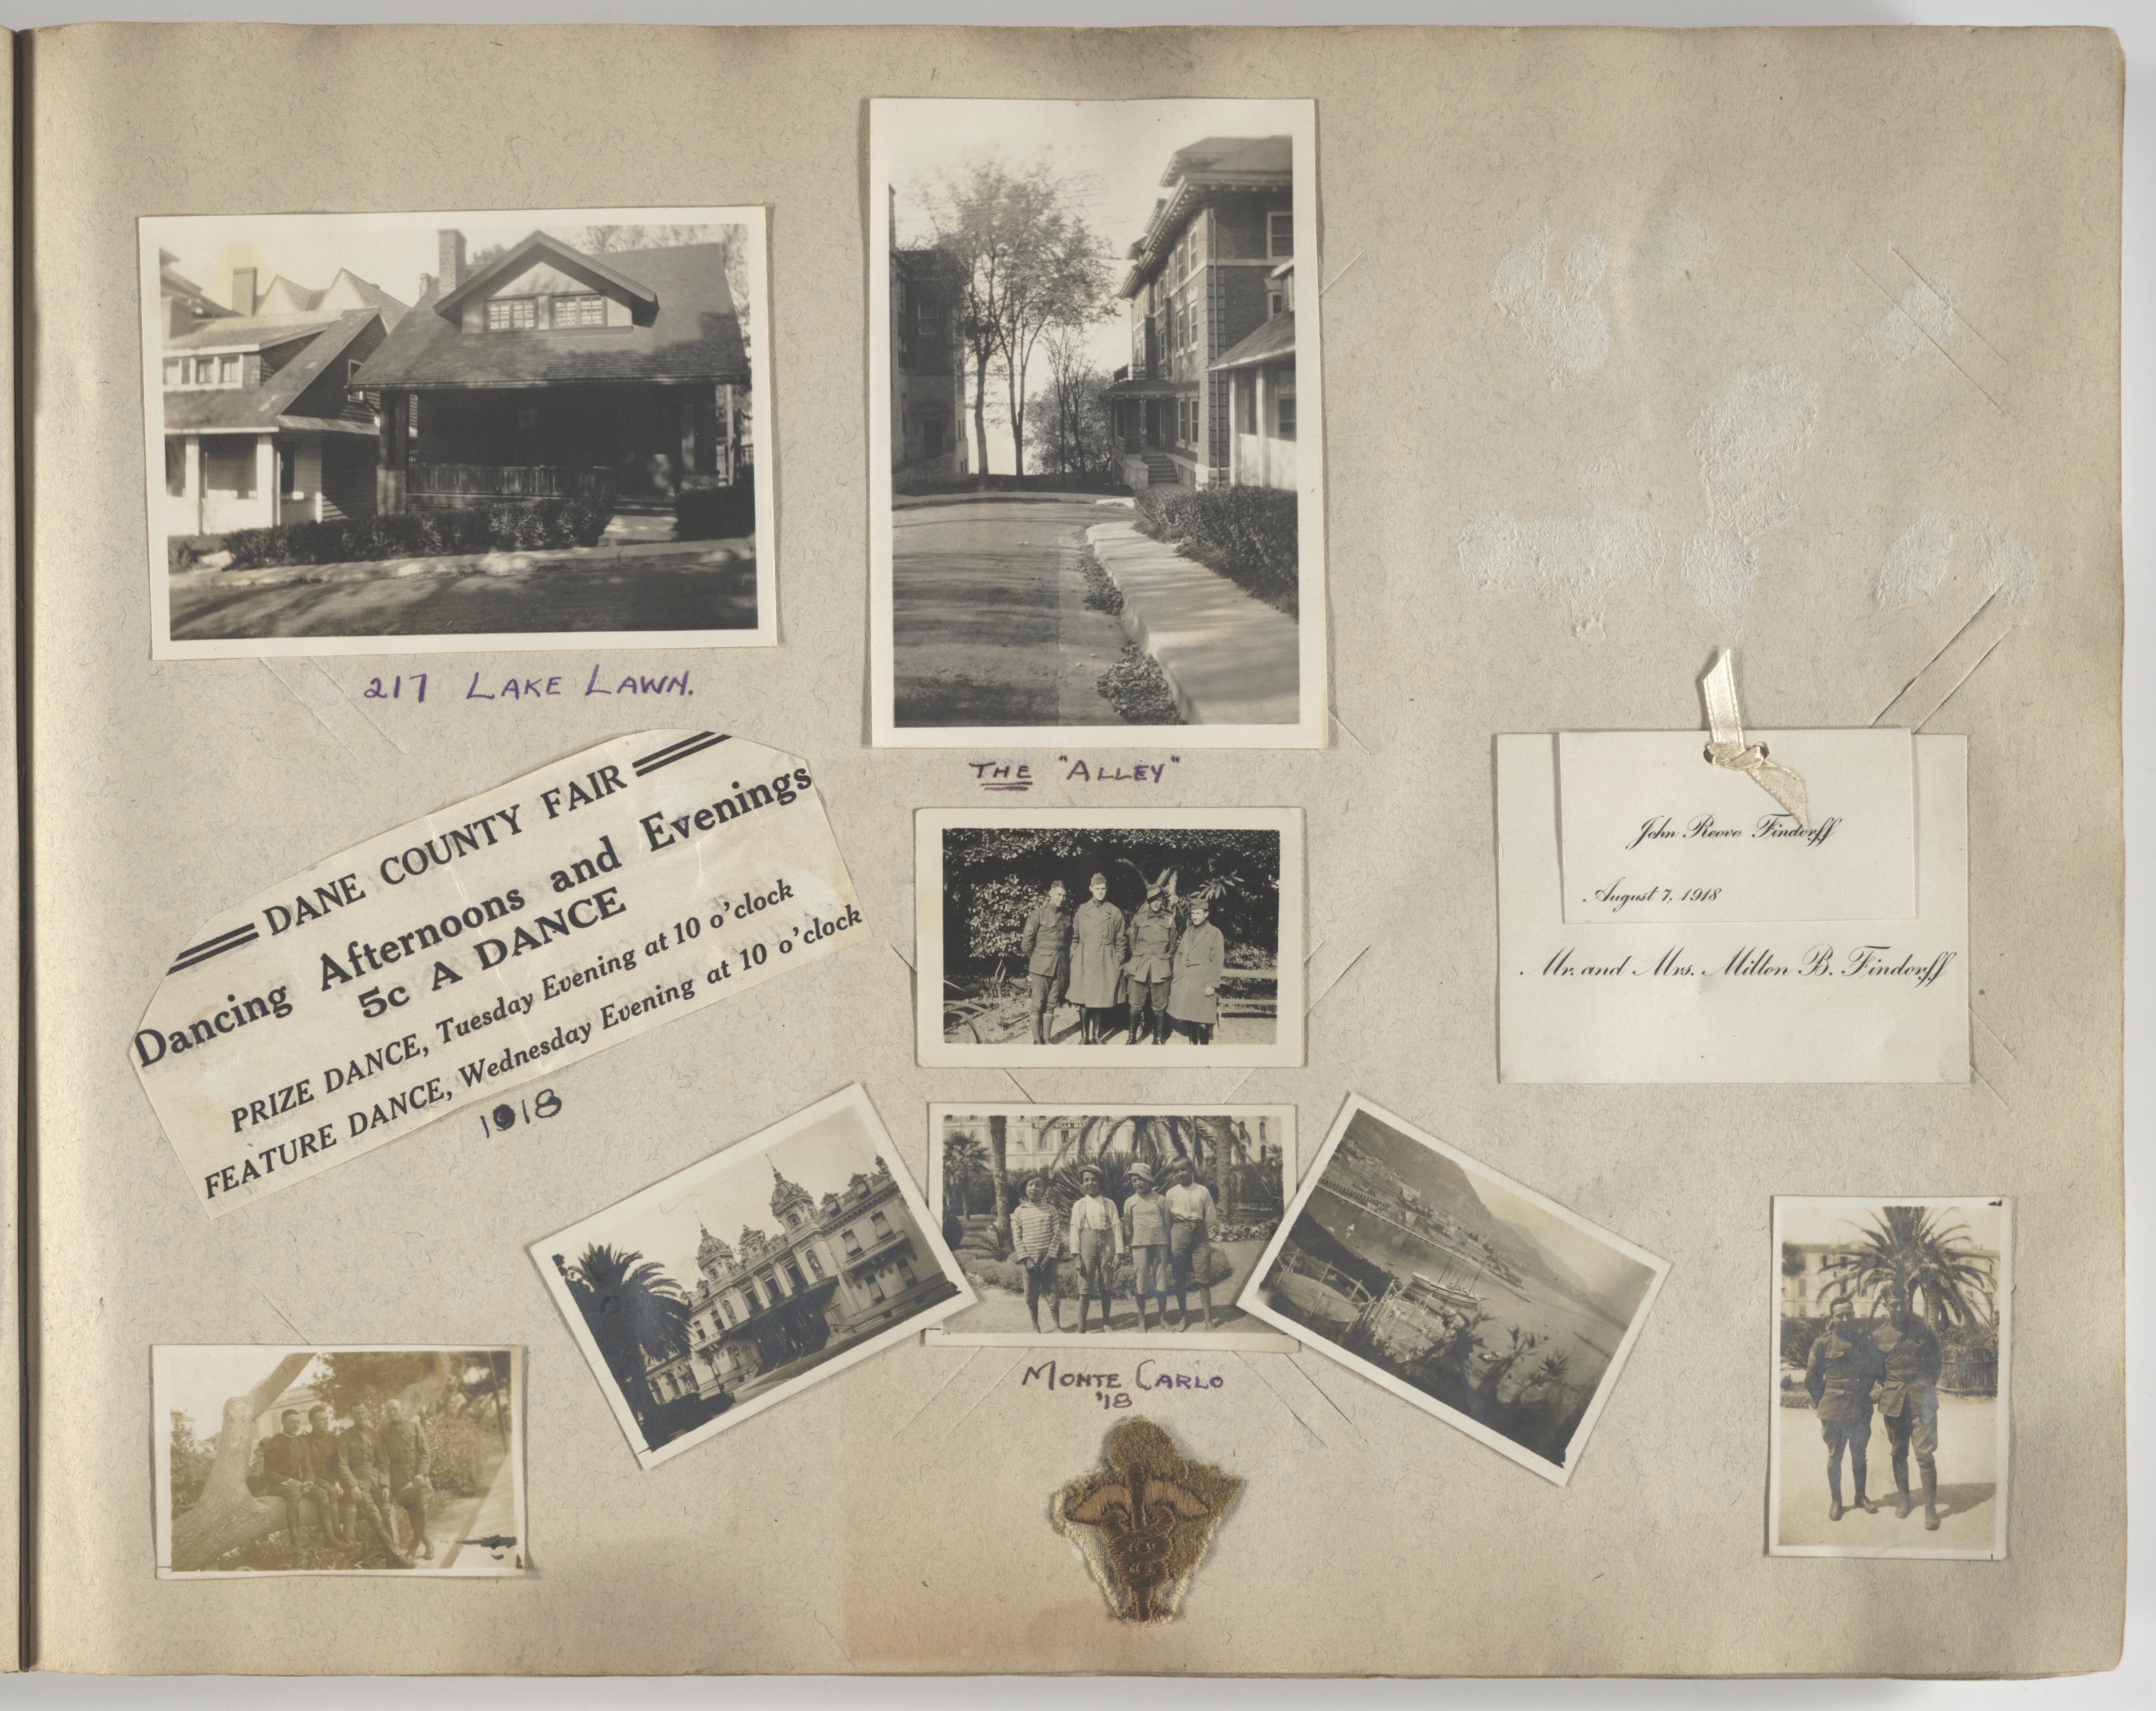 217 LAKE LAWN.
THE "ALLEY"
DANE COUNTY FAIR
Dancing Afternoons and Evenings
5c A DANCE
PRIZE DANCE, Tuesday Evening at 10 o'clock
FEATURE DANCE, Wednesday Evening at 10 o'clock
1918
John Reeve Findorff
August 7, 1918
Mr. and Mrs. Milton B. Findorff
MONTE CARLO
'18